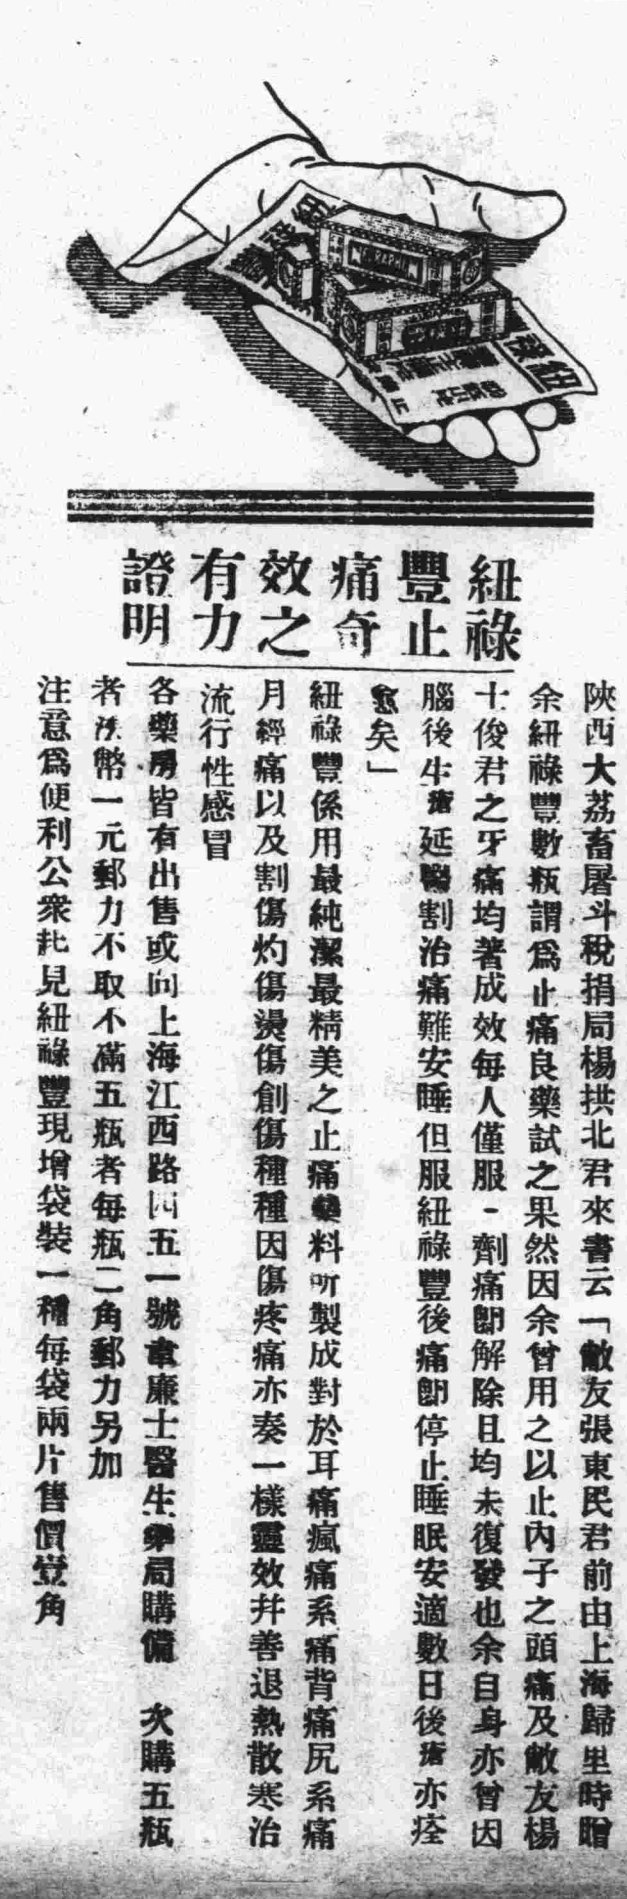 紐祿
豐止
痛奇
效之
有力
證明
陝西大荔畜屠斗稅捐局楊拱北君來書云「敝友張東民君前由上海歸里時贈
余紐祿豐數瓶謂爲止痛良藥試之果然因余曾用之以止內子之頭痛及敝友楊
士俊君之牙痛均著成效每人僅服一劑痛卽解除且均未復發也余自身亦曾因
腦後生瘡延醫割治痛難安睡但服紐祿豐後痛卽停止睡眠安適數日後瘡亦痊
愈矣」
紐祿豐係用最純潔最精美之止痛藥料所製成對於耳痛瘋痛系痛背痛尻系痛
月經痛以及割傷灼傷燙傷創傷種種因傷疼痛亦奏一樣靈效幷善退熱散寒治
流行性感冒
各藥房皆有出售或向上海江西路四五一號韋廉士醫生藥局購備 次購五瓶
者 幣一元郵力不取不滿五瓶者每瓶二角郵力另加
注意爲便利公衆起見紐祿豐現增袋裝一種每袋兩片售價壹角